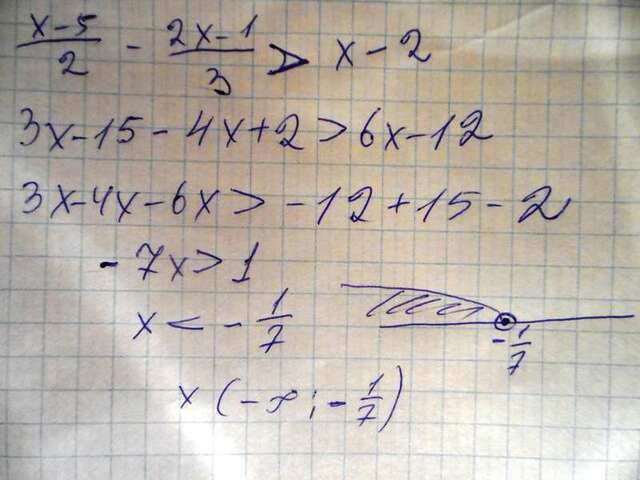 x-5/2 - 2x-1/3 > x-2
3x-15-4x+2>6x-12
3x-4x-6x>-12+15-2
-7x>1
x<-1/7
-1/7
x(-∞;-1/7)